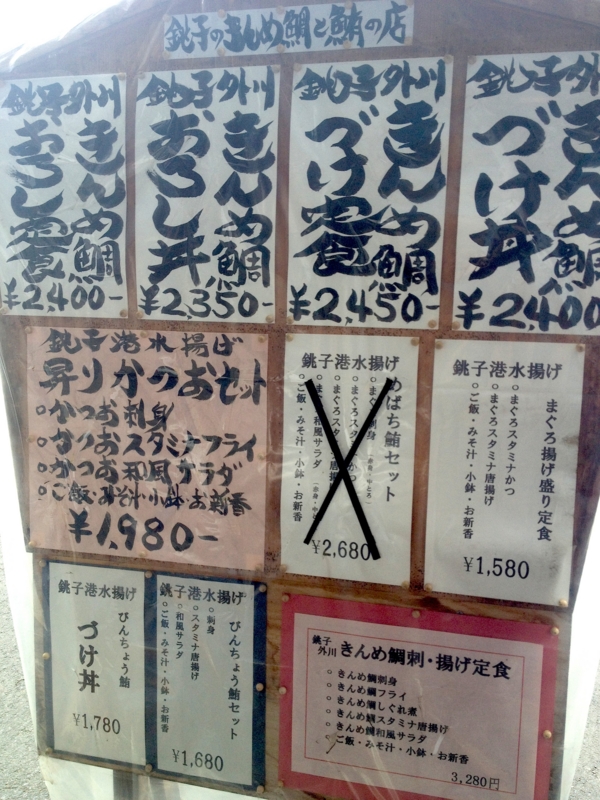 銚子のきんめ鯛と鮪の店
銚子外川
きんめ鯛
おろし定食
¥2,400-
銚子外川
きんめ鯛
おろし丼
¥2,350-
銚子外川
きんめ鯛
づけ定食
¥2,450-
銚子外川
きんめ鯛
づけ丼
¥2,400
銚子港水揚げ
昇りかつおセット
○かつお刺身
○かつおスタミナフライ
○かつお和風サラダ
○ご飯・みそ汁・小鉢・お新香
¥1,980-
銚子港水揚げ
めばち鮪セット
○まぐろ刺身(赤身・中とろ)
○まぐろスタミナかつ
○まぐろスタミナ唐揚げ
○まぐろ和風サラダ
○ご飯・みそ汁・小鉢・お新香
¥2,680
銚子港水揚げ
まぐろ揚げ盛り定食
○まぐろスタミナかつ
○まぐろスタミナ唐揚げ
○ご飯・みそ汁・小鉢・お新香
¥1,580
銚子港水揚げ
びんちょう鮪
づけ丼
¥1,780
銚子港水揚げ
びんちょう鮪セット
○刺身
○スタミナ唐揚げ
○和風サラダ
○ご飯・みそ汁・小鉢・お新香
¥1,680
銚子外川 きんめ鯛刺・揚げ定食
○きんめ鯛刺身
○きんめ鯛フライ
○きんめ鯛しぐれ煮
○きんめ鯛スタミナ唐揚げ
○きんめ鯛和風サラダ
○ご飯・みそ汁・小鉢・お新香
3,280円